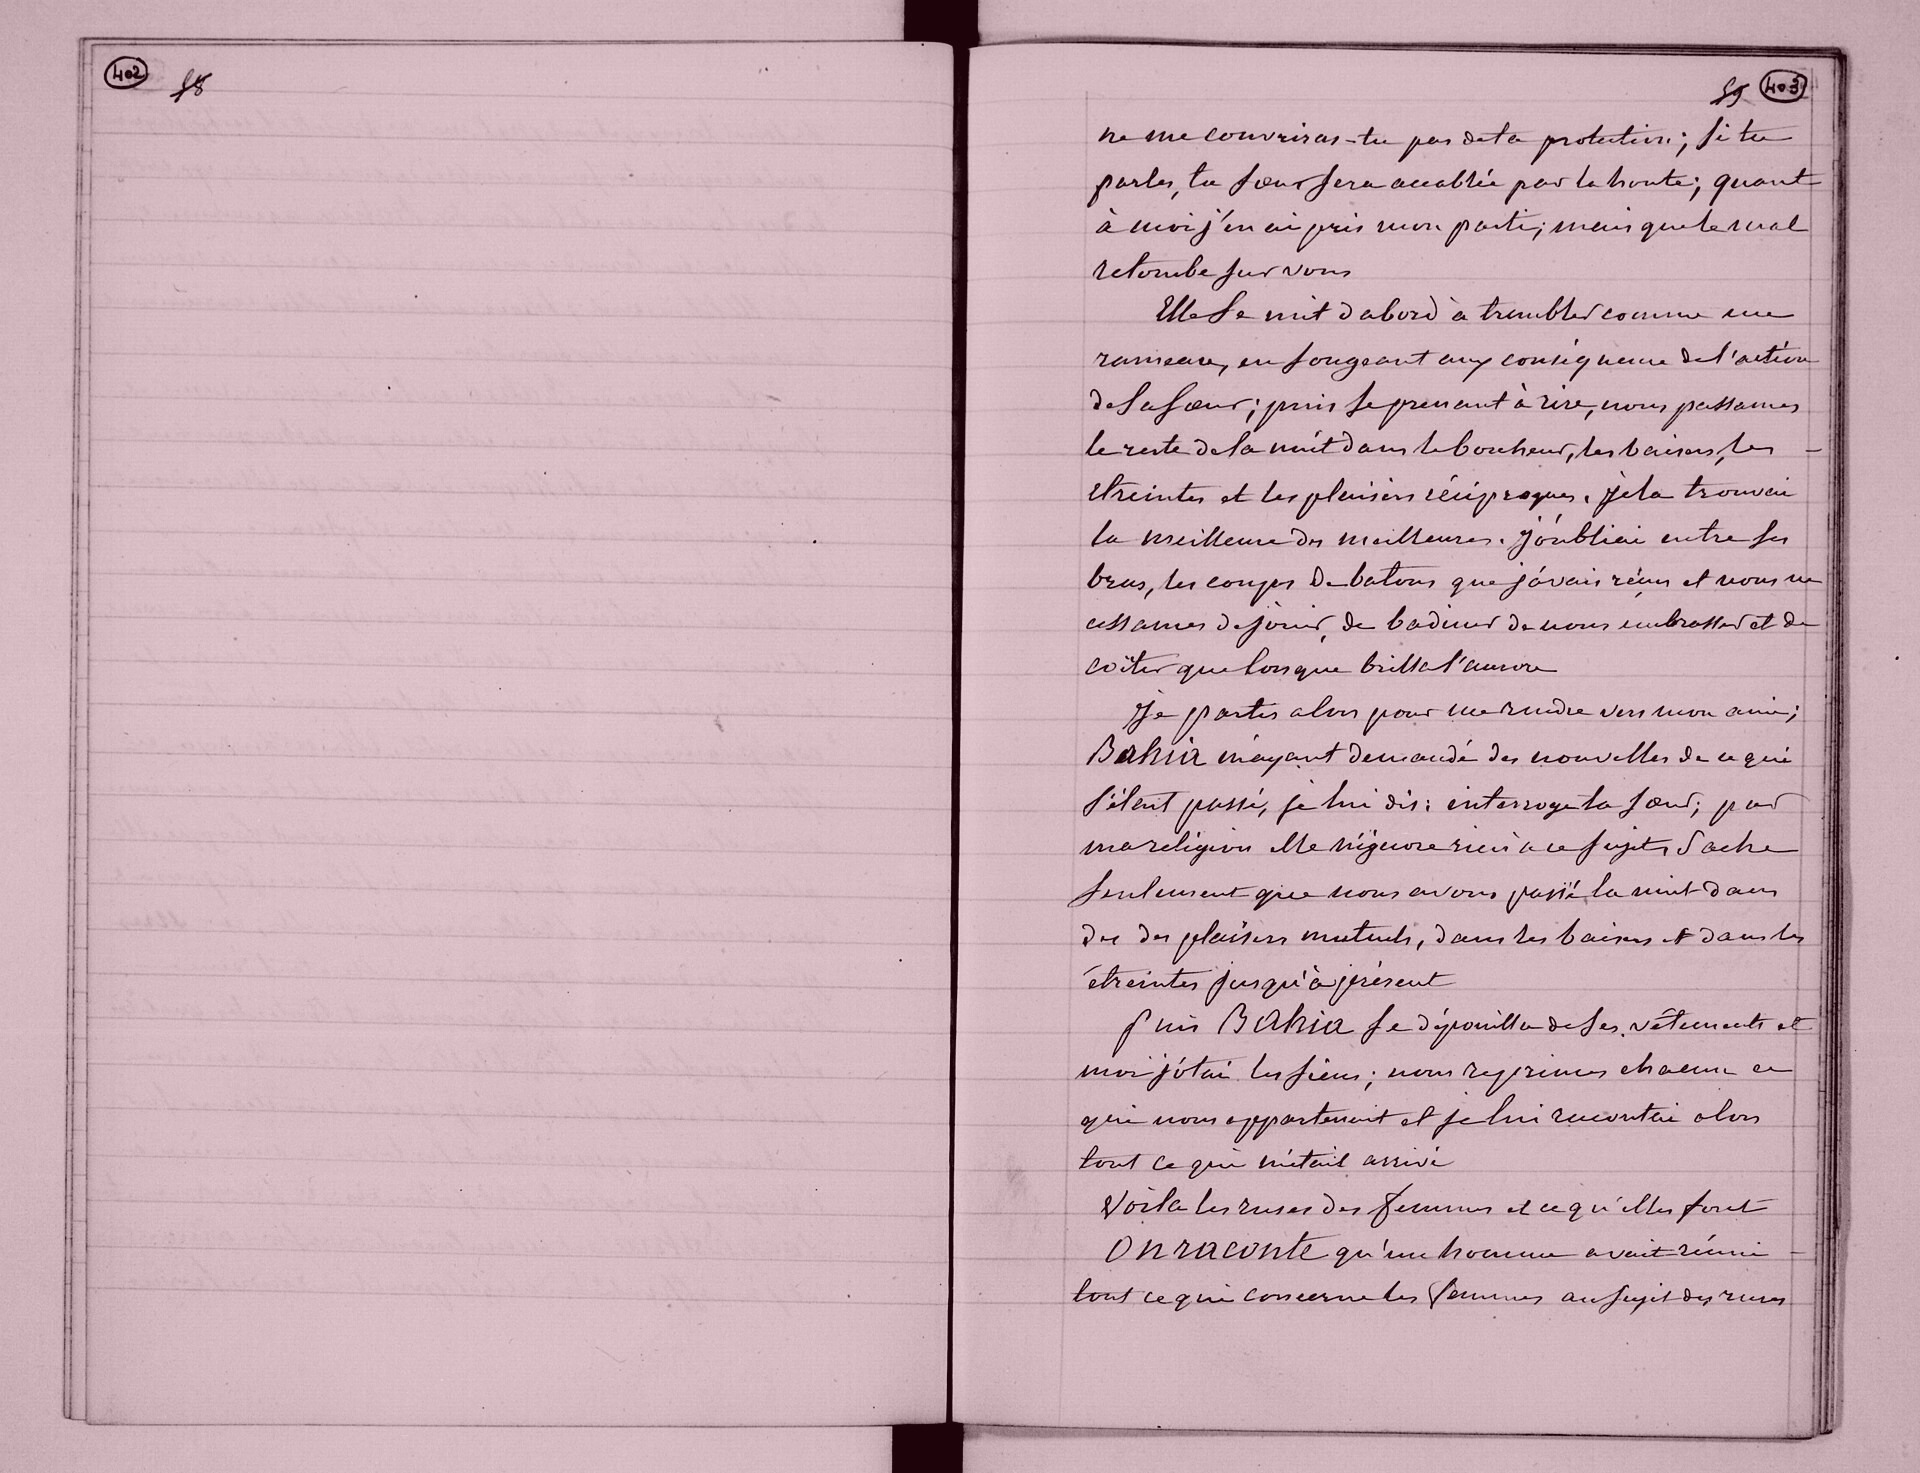 402
58
59 403
ne me couvriras-tu pas de ta protection; si tu
parles, ta sœur sera accablée par la honte; quant
à moi j'en ai pris mon parti; mais que le mal
retombe sur vous
Elle se mit d'abord à trembler comme une
rameau, en songeant aux conséquence de l'action
de sa sœur; puis se prenant à rire, nous passames
le reste de la nuit dans le bonheur, les baisers, les
étreintes et les plaisirs réciproques. Je la trouvai
la meilleure des meilleures. J'oubliai entre ses
bras, les coups de batons que j'avais reçus et nous ne
cessames de jouir, de badiner de nous embrasser et de
coïter que lorsque brilla l'aurore
Je partis alors pour me rendre vers mon ami;
Bahia m'ayant demandé des nouvelles de ce qui
s'était passé, je lui dis: interroge ta sœur; par
ma religion elle n'ignore rien à ce sujet, Sache
seulement que nous avons passé la nuit dans
des des plaisirs mutuels, dans les baisers et dans les
étreintes jusqu'à présent
Puis Bahia se dépouilla de ses vêtements et
moi j'ôtai les siens; nous reprimes chacun ce
qui nous appartenait et je lui racontai alors
tout ce qui m'était arrivé
Voila les ruses des femmes et ce qu'elles font
On raconte qu'un homme avait réuni
tout ce qui concerne les femmes au sujet des ruses